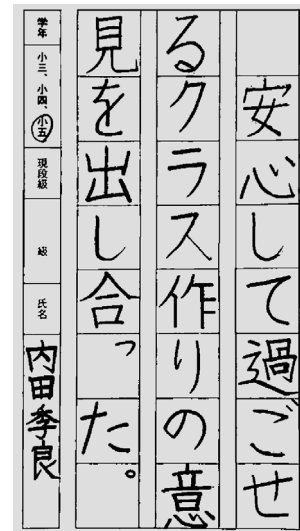 安心して過ごせ
るクラス作りの意
見を出し合った。
学年 小三、小四、小五 現段級 級 氏名 内田季良